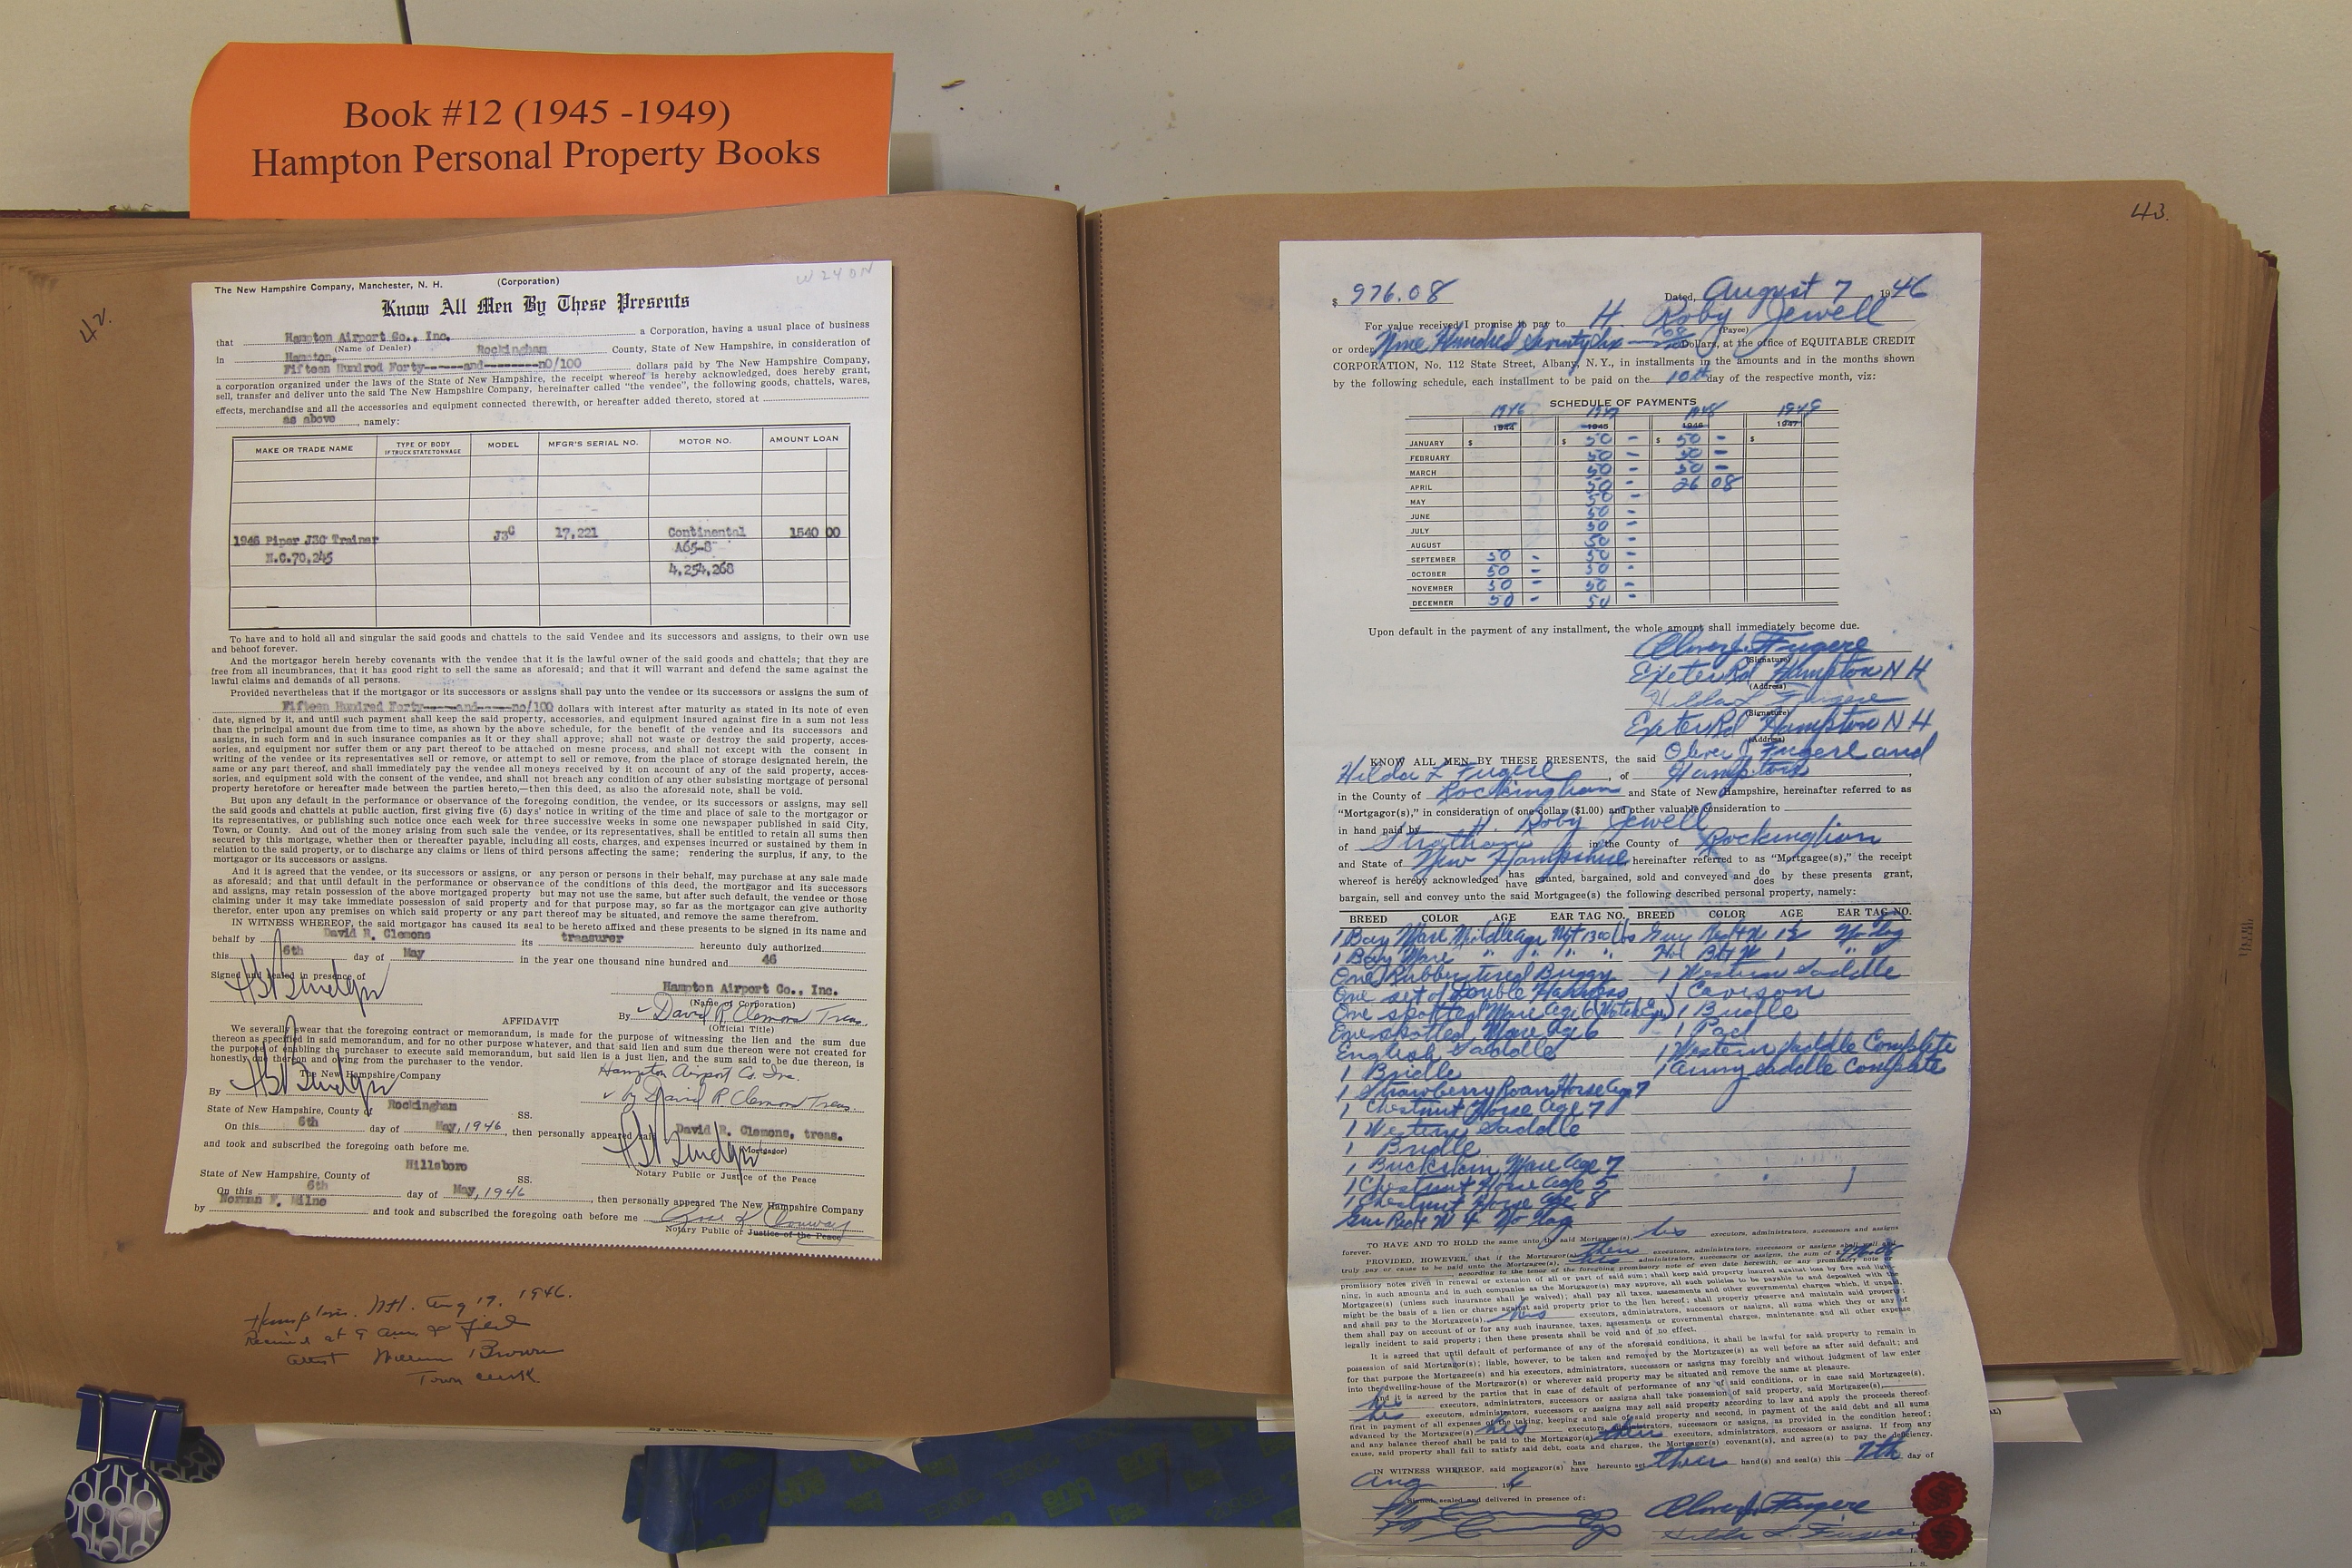 Book #12 (1945 -1949)
Hampton Personal Property Books
42.
W 240N
The New Hampshire Company, Manchester, N. H. (Corporation)
Know All Men By These Presents
that Hampton Airport Co., Inc. a Corporation, having a usual place of business
(Name of Dealer)
in Hampton, Rockingham County, State of New Hampshire, in consideration of
Fifteen Hundred Forty-----and--------nO/100 dollars paid by The New Hampshire Company,
a corporation organized under the laws of the State of New Hampshire, the receipt whereof is hereby acknowledged, does hereby grant,
sell, transfer and deliver unto the said The New Hampshire Company, hereinafter called "the vendee", the following goods, chattels, wares,
effects, merchandise and all the accessories and equipment connected therewith, or hereafter added thereto, stored at
as above, namely:
MAKE OR TRADE NAME TYPE OF BODY IF TRUCK STATE TONNAGE MODEL MFGR'S SERIAL NO. MOTOR NO. AMOUNT LOAN
1946 Piper J3C Trainer J3C 17,221 Continental 1540 00
N.C.70,245 A65-8
4,254,268
To have and to hold all and singular the said goods and chattels to the said Vendee and its successors and assigns, to their own use
and behoof forever.
And the mortgagor herein hereby covenants with the vendee that it is the lawful owner of the said goods and chattels; that they are
free from all incumbrances, that it has good right to sell the same as aforesaid; and that it will warrant and defend the same against the
lawful claims and demands of all persons.
Provided nevertheless that if the mortgagor or its successors or assigns shall pay unto the vendee or its successors or assigns the sum of
Fifteen Hundred Forty-----and----no/100 dollars with interest after maturity as stated in its note of even
date, signed by it, and until such payment shall keep the said property, accessories, and equipment insured against fire in a sum not less
than the principal amount due from time to time, as shown by the above schedule, for the benefit of the vendee and its successors and
assigns, in such form and in such insurance companies as it or they shall approve; shall not waste or destroy the said property, acces-
sories, and equipment nor suffer them or any part thereof to be attached on mesne process, and shall not except with the consent in
writing of the vendee or its representatives sell or remove, or attempt to sell or remove, from the place of storage designated herein, the
same or any part thereof, and shall immediately pay the vendee all moneys received by it on account of any of the said property, acces-
sories, and equipment sold with the consent of the vendee, and shall not breach any condition of any other subsisting mortgage of personal
property heretofore or hereafter made between the parties hereto,—then this deed, as also the aforesaid note, shall be void.
But upon any default in the performance or observance of the foregoing condition, the vendee, or its successors or assigns, may sell
the said goods and chattels at public auction, first giving five (5) days' notice in writing of the time and place of sale to the mortgagor or
its representatives, or publishing such notice once each week for three successive weeks in some one newspaper published in said City,
Town, or County. And out of the money arising from such sale the vendee, or its representatives, shall be entitled to retain all sums then
secured by this mortgage, whether then or thereafter payable, including all costs, charges, and expenses incurred or sustained by them in
relation to the said property, or to discharge any claims or liens of third persons affecting the same; rendering the surplus, if any, to the
mortgagor or its successors or assigns.
And it is agreed that the vendee, or its successors or assigns, or any person or persons in their behalf, may purchase at any sale made
as aforesaid; and that until default in the performance or observance of the conditions of this deed, the mortgagor and its successors
and assigns, may retain possession of the above mortgaged property but may not use the same, but after such default, the vendee or those
claiming under it may take immediate possession of said property and for that purpose may, so far as the mortgagor can give authority
therefor, enter upon any premises on which said property or any part thereof may be situated, and remove the same therefrom.
IN WITNESS WHEREOF, the said mortgagor has caused its seal to be hereto affixed and these presents to be signed in its name and
behalf by David R. Clemons its treasurer hereunto duly authorized
this 6th day of May in the year one thousand nine hundred and 46
Signed and sealed in presence of
Hampton Airport Co., Inc.
(Name of Corporation)
By David R. Clemons Treas.
(Official Title)
AFFIDAVIT
We severally swear that the foregoing contract or memorandum, is made for the purpose of witnessing the lien and the sum due
thereon as specified in said memorandum, and for no other purpose whatever, and that said lien and sum due thereon were not created for
the purpose of enabling the purchaser to execute said memorandum, but said lien is a just lien, and the sum said to be due thereon, is
honestly due thereon and owing from the purchaser to the vendor.
The New Hampshire Company Hampton Airport Co. Inc.
By by David R. Clemons Treas.
State of New Hampshire, County of Rockingham SS.
On this 6th day of May, 1946, then personally appeared said David R. Clemons, treas.
(Mortgagor)
and took and subscribed the foregoing oath before me.
Notary Public or Justice of the Peace
State of New Hampshire, County of Hillsboro SS.
On this 6th day of May, 1946, then personally appeared The New Hampshire Company
by Norman F. Milne and took and subscribed the foregoing oath before me Rose K. Conway
Notary Public or Justice of the Peace
Hampton. N.H. Aug 19, 1946.
Received at 9 a.m. & filed
attest William Brown
Town Clerk.
43.
$ 976.08 Dated, August 7 1946
For value received I promise to pay to H. Roby Jewell
(Payee)
or order Nine Hundred Seventy Six 08/100 Dollars, at the office of EQUITABLE CREDIT
CORPORATION, No. 112 State Street, Albany, N. Y., in installments in the amounts and in the months shown
by the following schedule, each installment to be paid on the 10th day of the respective month, viz:
SCHEDULE OF PAYMENTS
1946 1947 1948 1949
1944 1945 1946 1947
JANUARY $ $ 50 - $ 50 - $
FEBRUARY 50 - 50 -
MARCH 50 - 50 -
APRIL 50 - 26 08
MAY 50 -
JUNE 50 -
JULY 50 -
AUGUST 50 -
SEPTEMBER 50 - 50 -
OCTOBER 50 - 50 -
NOVEMBER 50 - 50 -
DECEMBER 50 - 50 -
Upon default in the payment of any installment, the whole amount shall immediately become due.
Oliver J. Fugere
(Signature)
Exeter Rd Hampton N H
(Address)
Hilda L Fugere
(Signature)
Exeter Rd Hampton N H
(Address)
KNOW ALL MEN BY THESE PRESENTS, the said Oliver J Fugere and
Hilda L Fugere, of Hampton,
in the County of Rockingham and State of New Hampshire, hereinafter referred to as
"Mortgagor(s)," in consideration of one dollar ($1.00) and other valuable consideration to
in hand paid by H. Roby Jewell
of Stratham in the County of Rockingham
and State of New Hampshire hereinafter referred to as "Mortgagee(s)," the receipt
whereof is hereby acknowledged has have granted, bargained, sold and conveyed and do does by these presents grant,
bargain, sell and convey unto the said Mortgagee(s) the following described personal property, namely:
BREED COLOR AGE EAR TAG NO. BREED COLOR AGE EAR TAG NO.
1 Bay Mare Middle age Wgt 1300 lbs Gur Red+W 1½ No tag
1 Bay Mare " " " " Hol B+W 1 " "
One Rubber tired Buggy 1 Western Saddle
One set of Double Harness 1 Caveson
One spotted Mare Age 6 1 Bridle
One spotted Mare Age 6 1 Pad
English Saddle 1 Western Saddle Complete
1 Bridle 1 army saddle complete
1 Strawberry Roan Horse age 7
1 Chestnut Horse Age 7
1 Western Saddle
1 Bridle
1 Buckskin Mare Age 7
1 Chestnut Horse Age 5
1 Chestnut Horse Age 8
Gur Red+W 4 No tag
TO HAVE AND TO HOLD the same unto the said Mortgagee(s), his executors, administrators, successors and assigns
forever.
PROVIDED, HOWEVER, that if the Mortgagor(s) their executors, administrators, successors or assigns shall well and
truly pay or cause to be paid unto the Mortgagee(s) his administrators, successors or assigns, the sum of $976.08
according to the tenor of the foregoing promissory note of even date herewith, or any promissory note or
promissory notes given in renewal or extension of all or part of said sum; shall keep said property insured against loss by fire and light-
ning, in such amounts and in such companies as the Mortgagee(s) may approve, all such policies to be payable to and deposited with the
Mortgagee(s) (unless such insurance shall be waived); shall pay all taxes, assessments and other governmental charges which, if unpaid,
might be the basis of a lien or charge against said property prior to the lien hereof; shall properly preserve and maintain said property;
and shall pay to the Mortgagee(s), his executors, administrators, successors or assigns, all sums which they or any of
them shall pay on account of or for any such insurance, taxes, assessments or governmental charges, maintenance and all other expense
legally incident to said property; then these presents shall be void and of no effect.
It is agreed that until default of performance of any of the aforesaid conditions, it shall be lawful for said property to remain in
possession of said Mortgagor(s); liable, however, to be taken and removed by the Mortgagee(s) as well before as after said default; and
for that purpose the Mortgagee(s) and his executors, administrators, successors or assigns may forcibly and without judgment of law enter
into the dwelling-house of the Mortgagor(s) or wherever said property may be situated and remove the same at pleasure.
And it is agreed by the parties that in case of default of performance of any of said conditions, or in case said Mortgagee(s),
his executors, administrators, successors or assigns shall take possession of said property, said Mortgagee(s),
his executors, administrators, successors or assigns may sell said property according to law and apply the proceeds thereof
first in payment of all expenses of the taking, keeping and sale of said property and second, in payment of the said debt and all sums
advanced by the Mortgagee(s) his executors, administrators, successors or assigns, as provided in the condition hereof;
and any balance thereof shall be paid to the Mortgagor(s) their executors, administrators, successors or assigns. If from any
cause, said property shall fail to satisfy said debt, costs and charges, the Mortgagor(s) covenant(s) and agree(s) to pay the deficiency.
IN WITNESS WHEREOF, said mortgagor(s) has have hereunto set their hand(s) and seal(s) this 7th day of
Aug, 19 6
Signed, sealed and delivered in presence of:
Oliver J. Fugere
Hilda L Fugere
L. S.